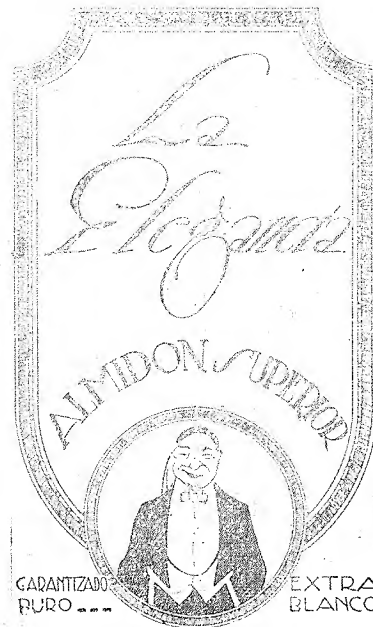 La
Elegancia
ALMIDON SUPERIOR
GARANTIZADO
PURO
EXTRA
BLANCO